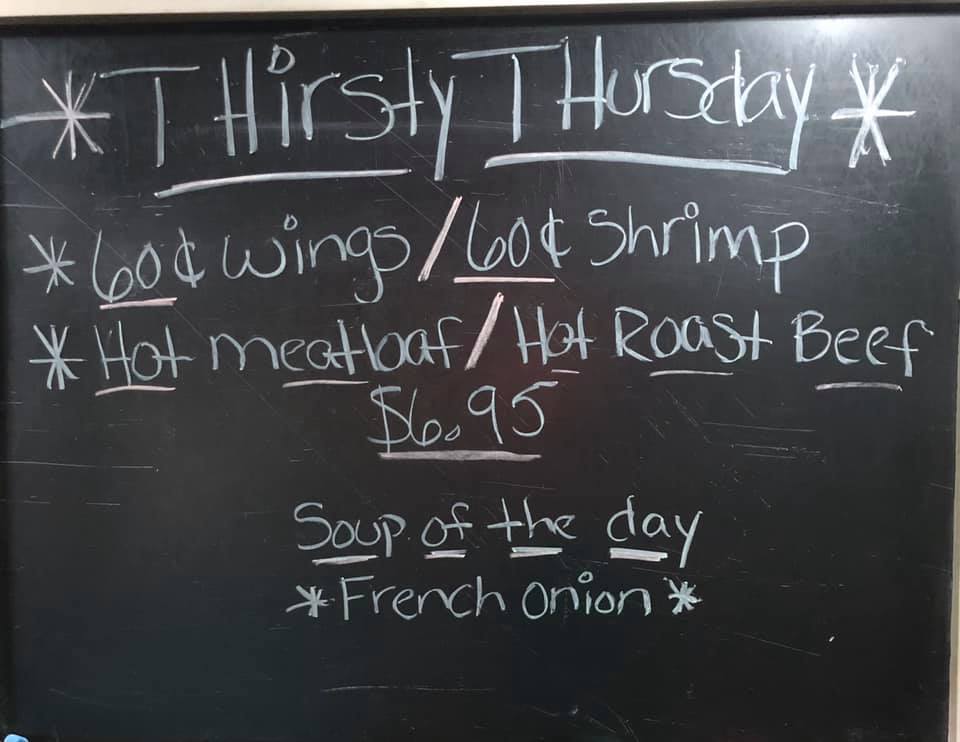 * THirsty THursday *
* 60¢ wings / 60¢ Shrimp
* Hot meatloaf / Hot Roast Beef
$6.95
Soup of the day
* French onion *